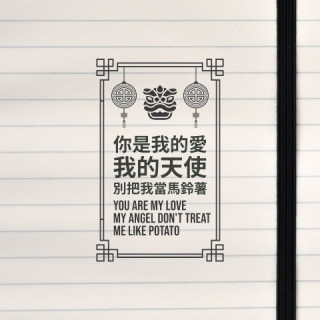 你是我的愛
我的天使
別把我當馬鈴薯
YOU ARE MY LOVE
MY ANGEL DON'T TREAT
ME LIKE POTATO